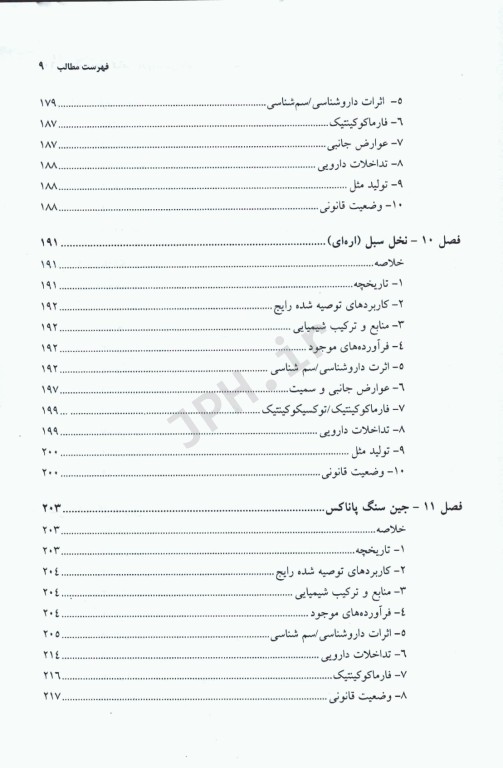 فهرست مطالب ۹
۵- اثرات داروشناسی/سم‌شناسی ۱۷۹
۶- فارماکوکینتیک ۱۸۷
۷- عوارض جانبی ۱۸۷
۸- تداخلات دارویی ۱۸۸
۹- تولید مثل ۱۸۸
۱۰- وضعیت قانونی ۱۸۸
فصل ۱۰ - نخل سبل (اره‌ای) ۱۹۱
خلاصه ۱۹۱
۱- تاریخچه ۱۹۱
۲- کاربردهای توصیه شده رایج ۱۹۲
۳- منابع و ترکیب شیمیایی ۱۹۲
۴- فرآورده‌های موجود ۱۹۲
۵- اثرت داروشناسی/سم شناسی ۱۹۲
۶- عوارض جانبی و سمیت ۱۹۷
۷- فارماکوکینتیک/توکسیکوکینتیک ۱۹۹
۸- تداخلات دارویی ۱۹۹
۹- تولید مثل ۲۰۰
۱۰- وضعیت قانونی ۲۰۰
فصل ۱۱ - جین سنگ پاناکس ۲۰۳
خلاصه ۲۰۳
۱- تاریخچه ۲۰۳
۲- کاربردهای توصیه شده رایج ۲۰۴
۳- منابع و ترکیب شیمیایی ۲۰۴
۴- فرآورده‌های موجود ۲۰۴
۵- اثرات داروشناسی/سم شناسی ۲۰۵
۶- تداخلات دارویی ۲۱۴
۷- فارماکوکینتیک ۲۱۶
۸- وضعیت قانونی ۲۱۷
JPH.ir